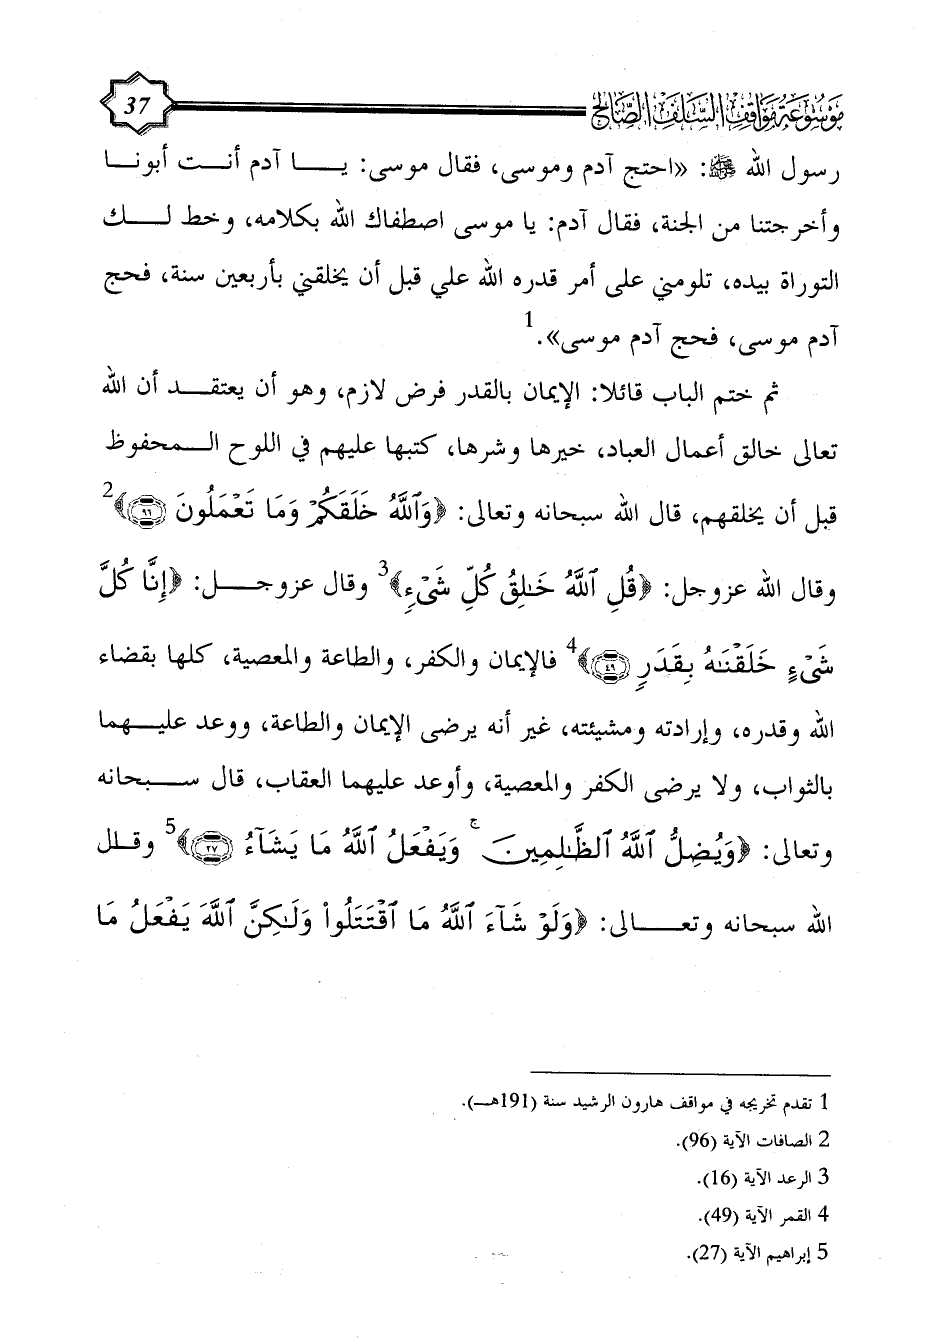 موسوعة مواقف السلف الصالح
37
رسول الله ﷺ: «احتج آدم وموسى، فقال موسى: يا آدم أنت أبونا
وأخرجتنا من الجنة، فقال آدم: يا موسى اصطفاك الله بكلامه، وخط لك
التوراة بيده، تلومني على أمر قدره الله علي قبل أن يخلقني بأربعين سنة، فحج
آدم موسى، فحج آدم موسى».1
ثم ختم الباب قائلا: الإيمان بالقدر فرض لازم، وهو أن يعتقد أن الله
تعالى خالق أعمال العباد، خيرها وشرها، كتبها عليهم في اللوح المحفوظ
قبل أن يخلقهم، قال الله سبحانه وتعالى: ﴿وَٱللَّهُ خَلَقَكُمْ وَمَا تَعْمَلُونَ ٩٦﴾2
وقال الله عزوجل: ﴿قُلِ ٱللَّهُ خَٰلِقُ كُلِّ شَىْءٍ﴾3 وقال عزوجل: ﴿إِنَّا كُلَّ
شَىْءٍ خَلَقْنَٰهُ بِقَدَرٍ ٤٩﴾4 فالإيمان والكفر، والطاعة والمعصية، كلها بقضاء
الله وقدره، وإرادته ومشيئته، غير أنه يرضى الإيمان والطاعة، ووعد عليهما
بالثواب، ولا يرضى الكفر والمعصية، وأوعد عليهما العقاب، قال سبحانه
وتعالى: ﴿وَيُضِلُّ ٱللَّهُ ٱلظَّٰلِمِينَ ۚ وَيَفْعَلُ ٱللَّهُ مَا يَشَآءُ ٢٧﴾5 وقال
الله سبحانه وتعالى: ﴿وَلَوْ شَآءَ ٱللَّهُ مَا ٱقْتَتَلُوا۟ وَلَٰكِنَّ ٱللَّهَ يَفْعَلُ مَا
1 تقدم تخريجه في مواقف هارون الرشيد سنة (191هـ).
2 الصافات الآية (96).
3 الرعد الآية (16).
4 القمر الآية (49).
5 إبراهيم الآية (27).